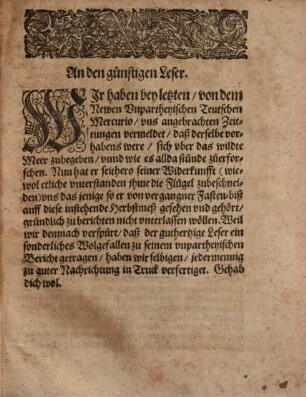 An den günstigen Leser.
WIr haben bey letzten / von dem
Newen Vnpartheyischen Teutschen
Mercurio / vns angebrachten Zei-
tungen vermeldet / daß derselbe vor-
habens were / sich vber das wildte
Meer zubegeben / vnnd wie es allda stünde züerfor-
schen. Nun hat er seithero seiner Widerkunfft (wie-
wol etliche vnterstanden ihme die Flügel zubeschnei-
den) vns das jenige so er von vergangner Fasten-biß
auff diese instehende Herbstmeß gesehen vnd gehört /
gründlich zu berichten nicht vnterlassen wöllen. Weil
wir dennach verspürt / daß der guthertzige Leser ein
sonderliches Wolgefallen zu seinem vnpartheyischen
Bericht getragen / haben wir selbigen / jedermennig
zu guter Nachrichtung in Truck verfertiget. Gehab
dich wol.